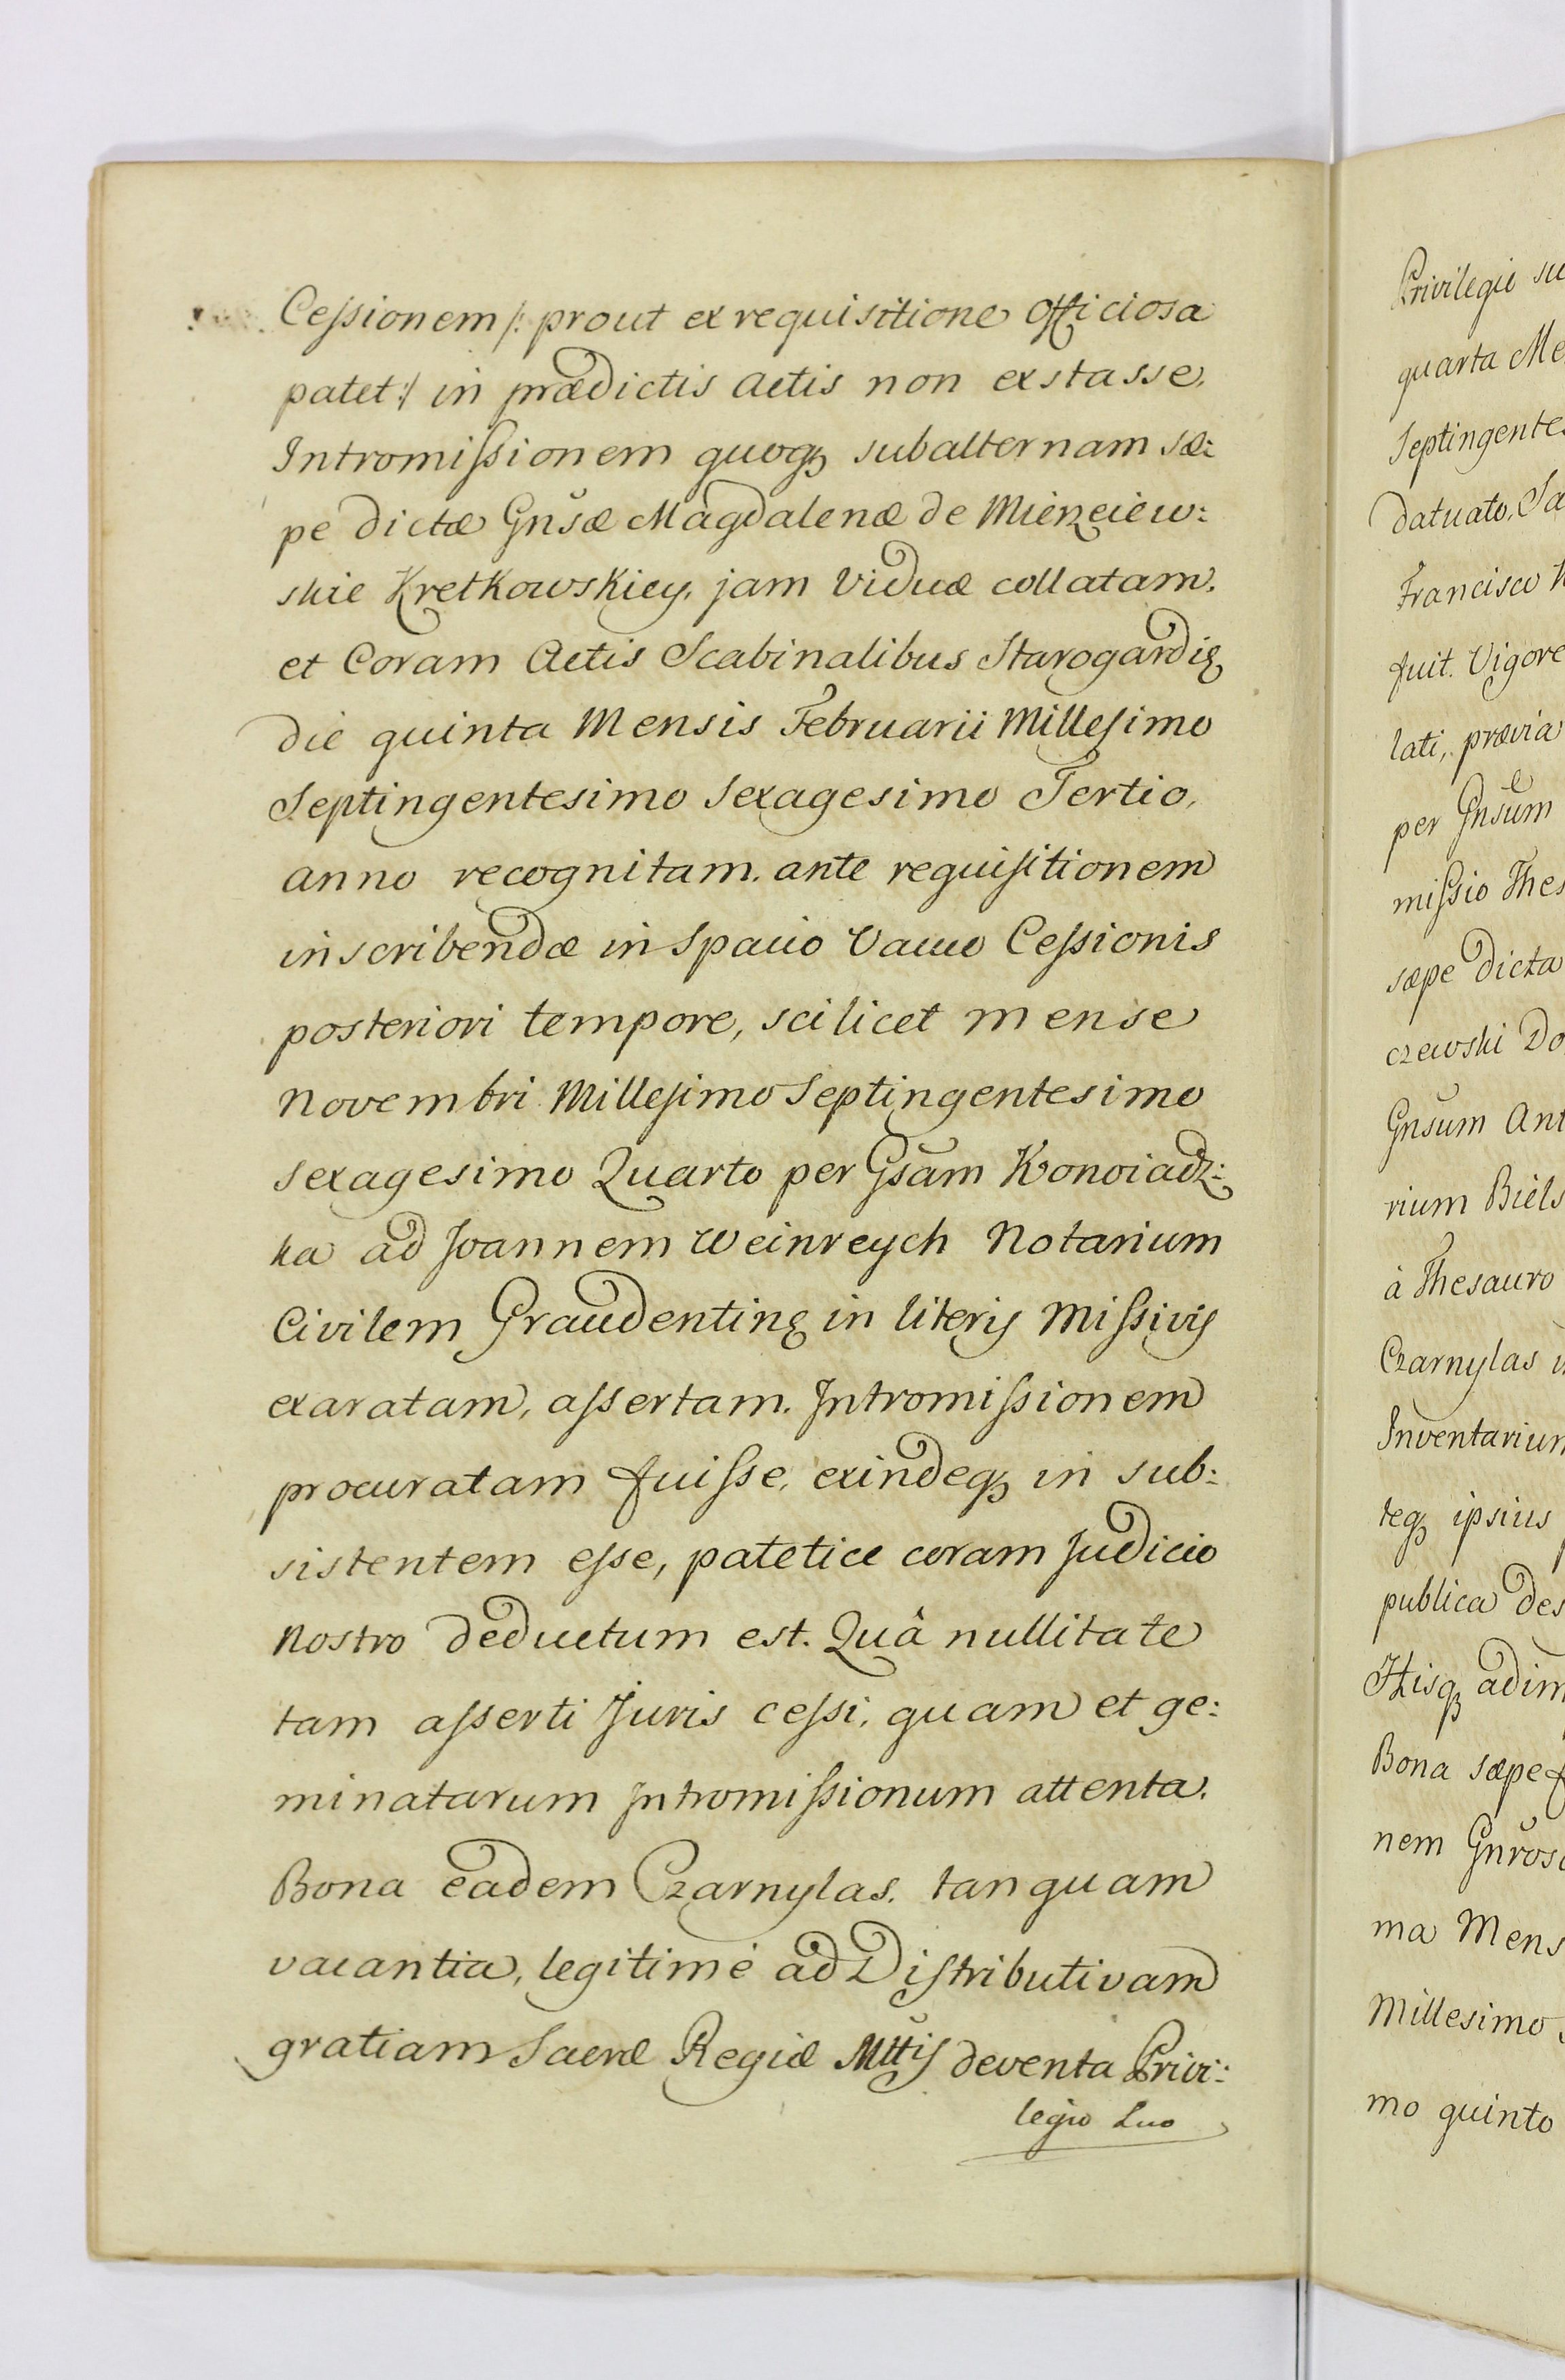 Cessionem /: prout ex requisitione Officiosa
patet :/ in prædictis Actis non exstasse,
Intromissionem quoq₃ subalternam sæ:
pe dictæ Gnsæ Magdalenæ de Mierzeiew:
skie Kretkowskiey, jam Viduæ collatam,
et Coram Actis Scabinalibus Starogardis
die quinta Mensis Februarii Millesimo
Septingentesimo Sexagesimo Tertio,
anno recognitam, ante requisitionem
inscribendæ in spacio Vacuo Cessionis
posteriori tempore, scilicet mense
Novembri Millesimo Septingentesimo
Sexagesimo Quarto per Gsam Konoiadz:
ka ad Joannem Weinreych Notarium
Civilem Graudentins in literis Missivis
exaratam, assertam. Intromissionem
procuratam fuisse, exindeq₃ in sub:
sistentem esse, patetice coram Judicio
Nostro deductum est. Quâ nullitate
tam asserti Juris cessi, quam et ge:
minatarum Intromissionum attenta.
Bona eadem Czarnylas, tanquam
vacantia, legitimè ad Distributivam
gratiam Sacræ Regiæ Mttis deventa Privi:
legio Suo
Privilegio su
quarta Me
Septingentes
datuato, Sa
Francisco
fuit. Vigore
lati, prævia
per Gnsum
missio Thes
sæpe dicta
czewski Do
Gnsum Ant
rium Biels
à Thesauro
Czarnylas
Inventarium
teq₃ ipsius
publica des
Hisq₃ adim
Bona sæpe
nem Gnros
ma Mens
Millesimo
mo quinto